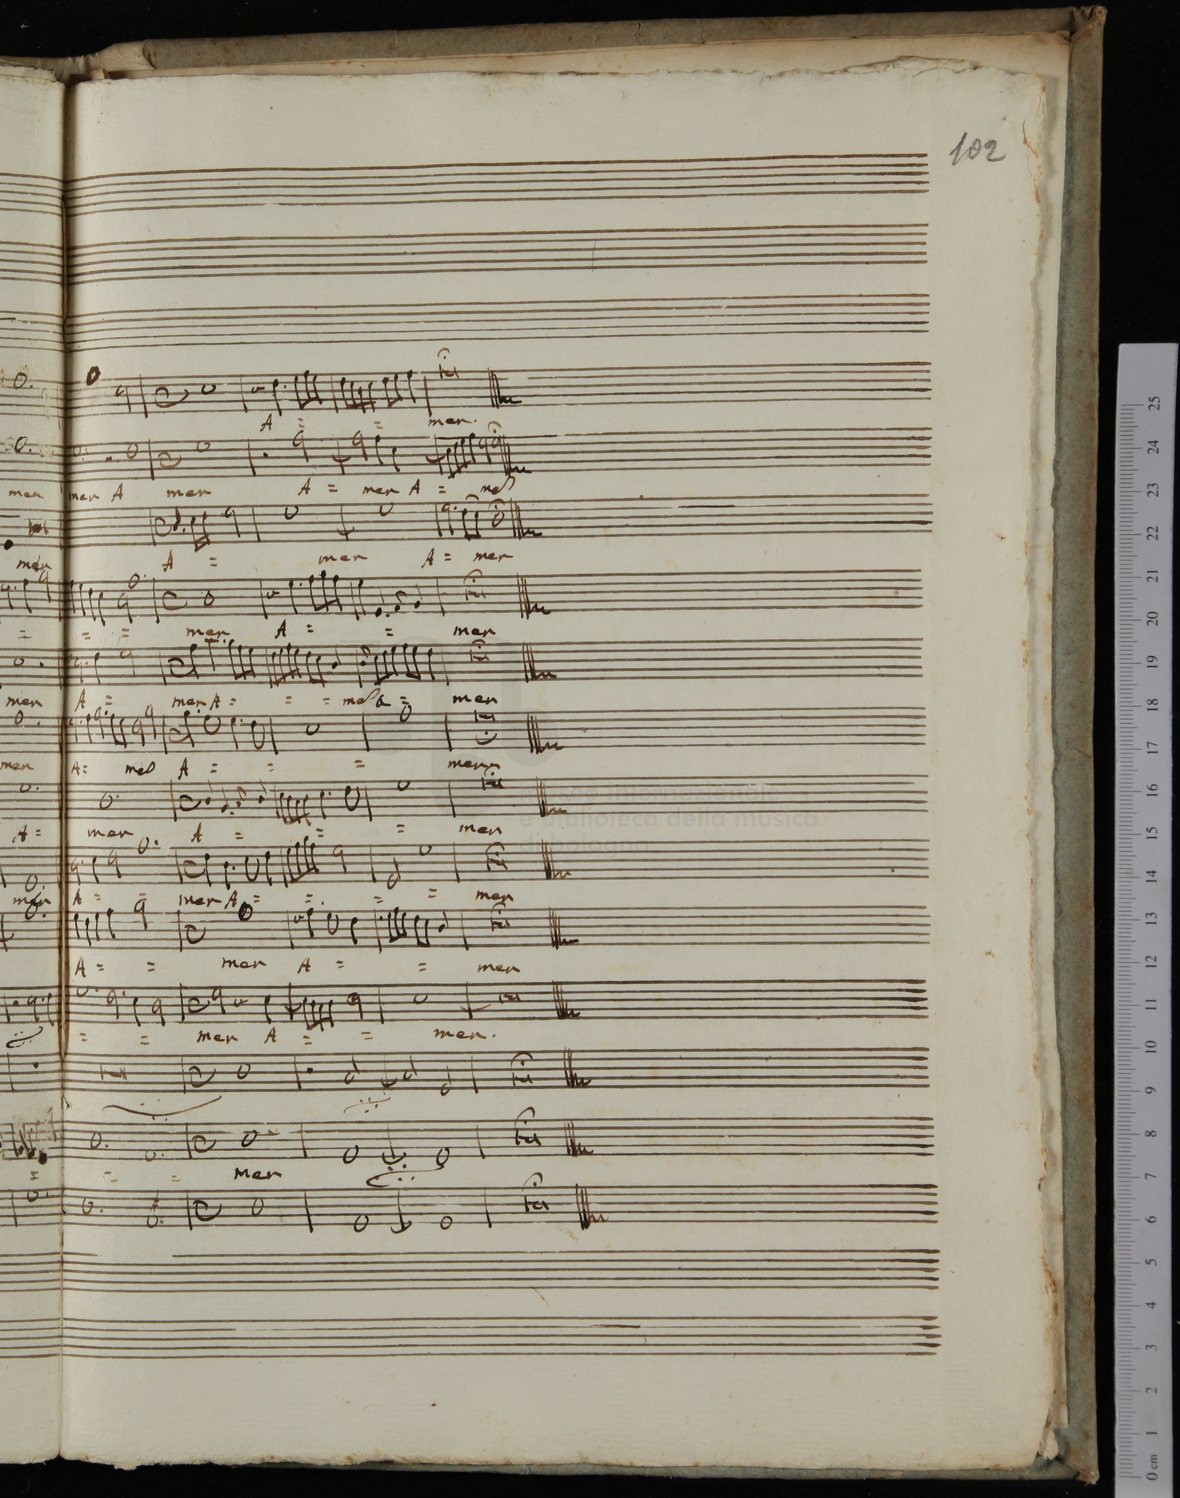 102
A = = men.
men men A men A = men A = me
men A = men A = men
= = = men. A = = men
men A = men A = = = me a = men
men A = me A = = = men
A = men A = = = men
men A = = men A = = = = men
A = = men A = = men
= = men A = = men.
= = = men
museo internazionale
e biblioteca della musica
di bologna
25
24
23
22
21
20
19
18
17
16
15
14
13
12
11
10
9
8
7
6
5
4
3
2
1
0 cm